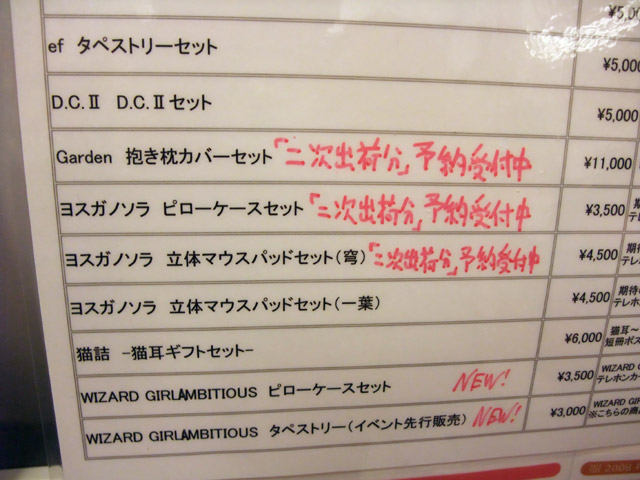 ef タペストリーセット ¥5,000
D.C.Ⅱ D.C.Ⅱセット ¥5,000
Garden 抱き枕カバーセット 「二次出荷分」予約受付中 ¥11,000
ヨスガノソラ ピローケースセット 「二次出荷分」予約受付中 ¥3,500
ヨスガノソラ 立体マウスパッドセット(穹) 「二次出荷分」予約受付中 ¥4,500
ヨスガノソラ 立体マウスパッドセット(一葉) ¥4,500 期待の テレホ
猫詰 -猫耳ギフトセット- ¥6,000 猫耳~ 短冊ポス
WIZARD GIRLAMBITIOUS ピローケースセット NEW! ¥3,500 WIZARD G テレホンカー
WIZARD GIRLAMBITIOUS タペストリー(イベント先行販売) NEW! ¥3,000 WIZARD G ※こちらの商